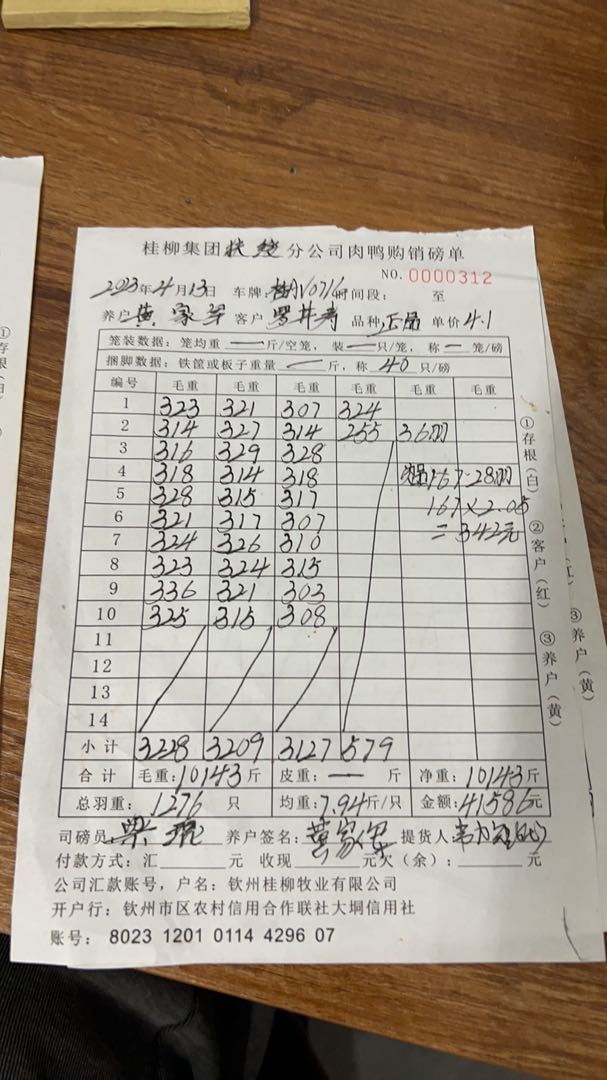 桂柳集团 分公司肉鸭购销磅单
NO. 0000312
2023年4月13日 车牌: 时间段: 至
养户 黄家 客户 罗 品种 单价 4.1
笼装数据: 笼均重 — 斤/空笼, 装 — 只/笼, 称 — 笼/磅
捆脚数据: 铁筐或板子重量 — 斤, 称 40 只/磅
编号 毛重 毛重 毛重 毛重 毛重 毛重
1 323 321 307 324
2 314 327 314 255 36羽
3 316 329 328
4 318 314 318 167-28羽
5 328 315 317 167×2.05
6 321 317 307 =342元
7 324 326 310
8 323 324 315
9 336 321 303
10 325 315 308
11
12
13
14
小计 3228 3209 3127 579
合计 毛重:10143斤 皮重: — 斤 净重:10143斤
总羽重: 1276 只 均重:7.94斤/只 金额:41586元
司磅员 养户签名: 黄家 提货人
付款方式: 汇 元 收现 元欠(余): 元
公司汇款账号, 户名: 钦州桂柳牧业有限公司
开户行: 钦州市区农村信用合作联社大垌信用社
账号: 8023 1201 0114 4296 07
①存根(白) ②客户(红) ③养户(黄)
③养户(黄)
①存